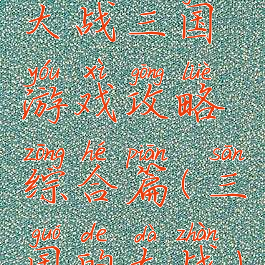 大战三国
yóu xì gōng lüè
游戏攻略
zōng hé piān sān
综合篇(三
guó de dà zhàn
国的大战)